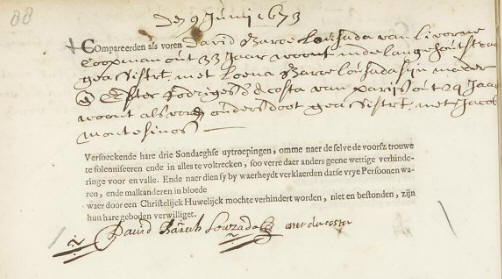 88
den 9 Junij 1673
Compareerden als voren David Baroe Lousada van livorne
Coopman out 33 Jaar woont inde langehoutstraat
geassistrt. met Loena Baroe lousada sijn moeder
& Ester Rodriges da costa van parijs out 29 Jaar
woont als voren ouders doot geassistrt. met Jacob
montesinos
Versoeckende hare drie Sondaeghse uytroepingen, omme naer de selve de voorsz trouwe
te solemniseren ende in alles te voltrecken, soo verre daer anders geene wettige verhinde-
ringe voor en valle. Ende naer dien sy by waerheydt verklaerden datse vrye Persoonen wa-
ren, ende malkanderen in bloede
waer door een Christelijck Huwelijck mochte verhindert worden, niet en bestonden, zijn
hun hare geboden verwilliget.
David Baruh Louzada